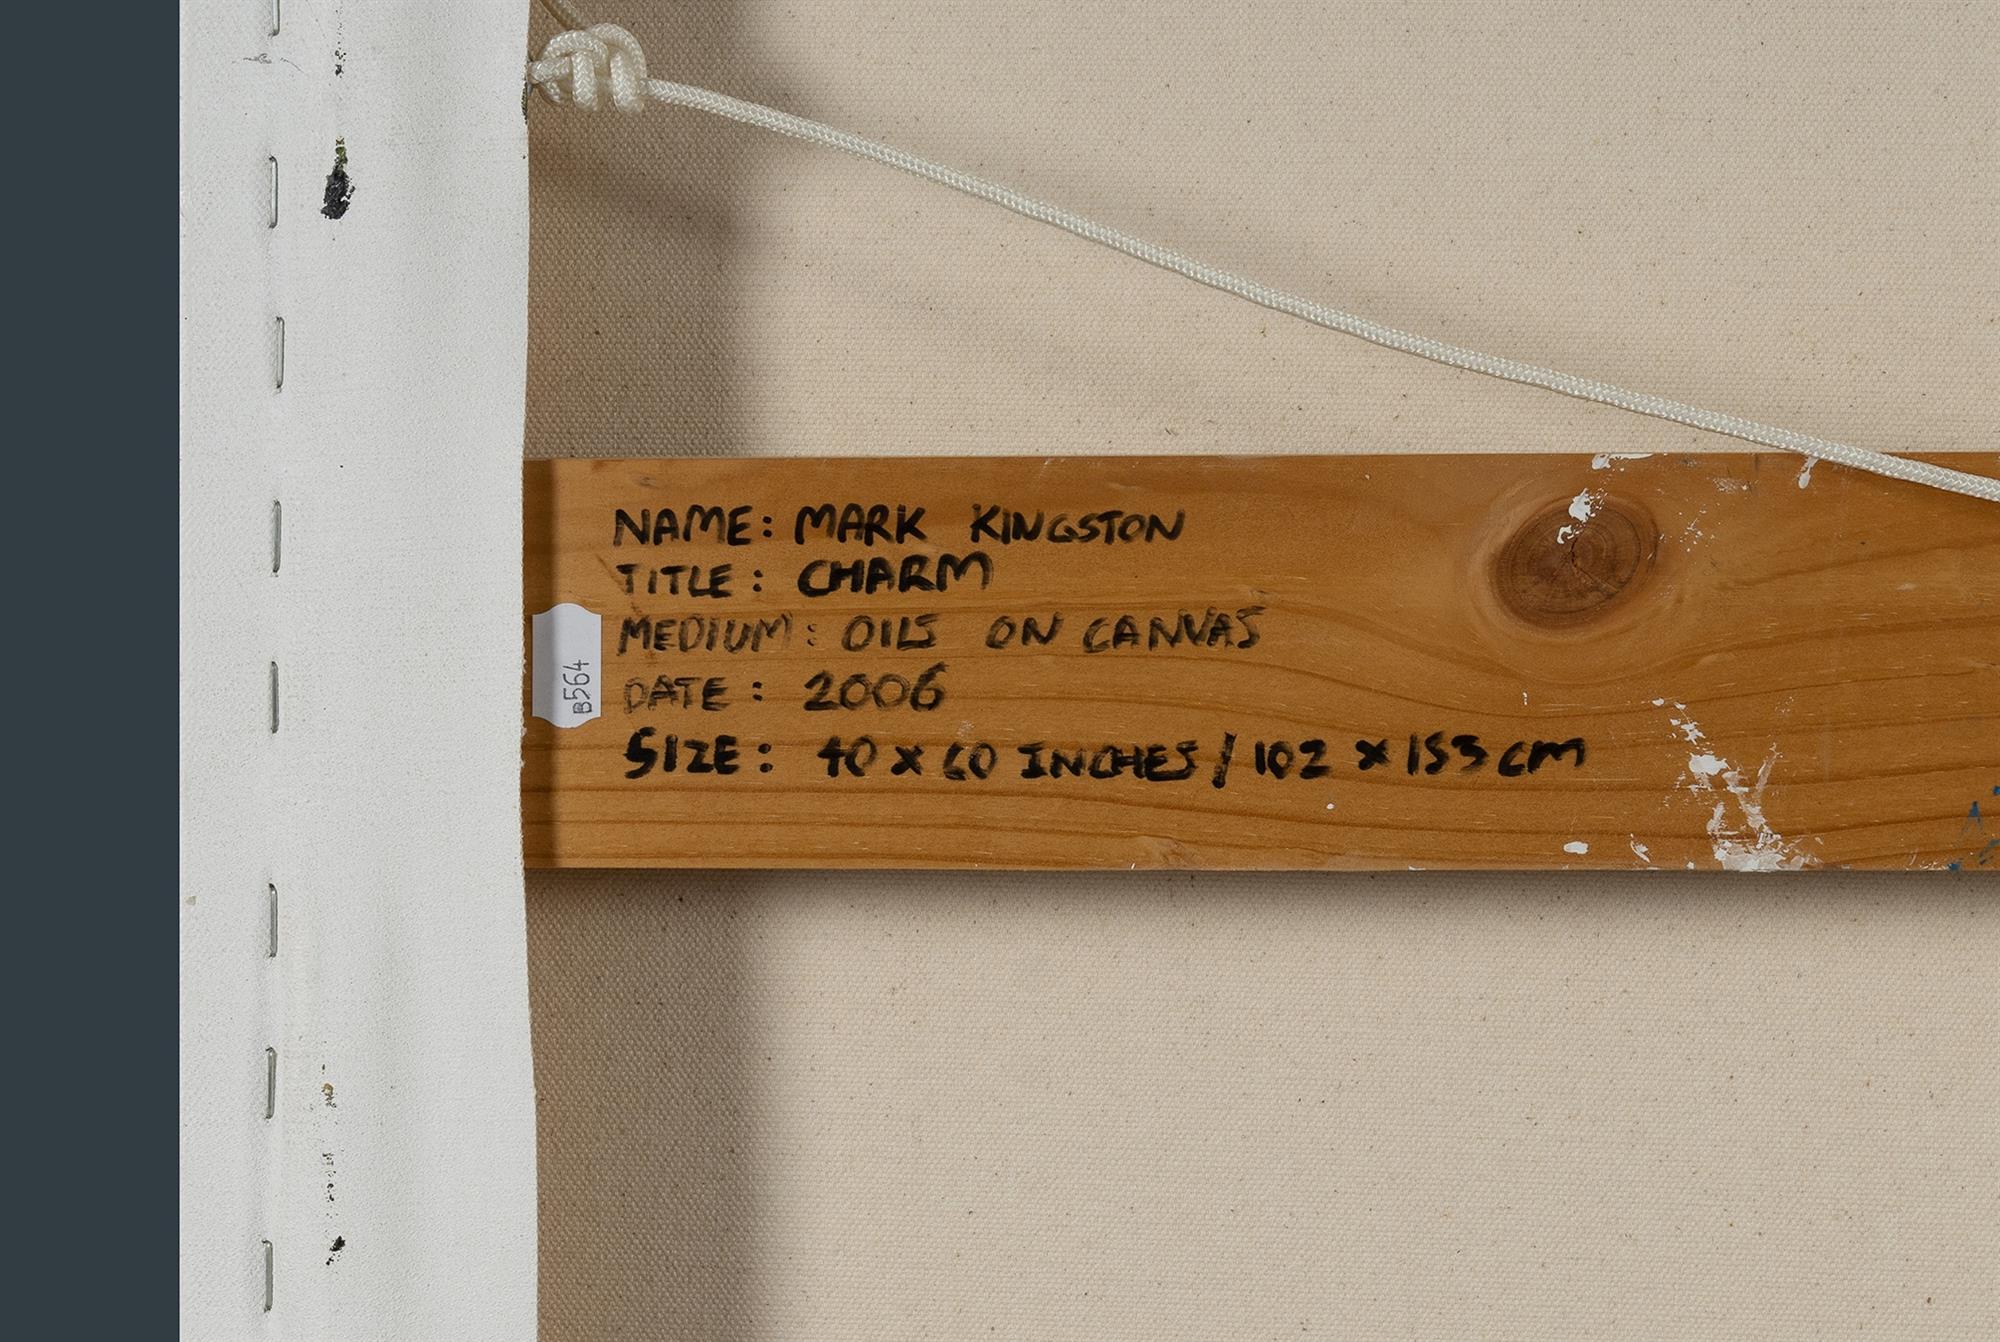 NAME: MARK KINGSTON
TITLE: CHARM
MEDIUM: OILS ON CANVAS
DATE: 2006
SIZE: 40 x 60 INCHES / 102 x 153 cm
B564